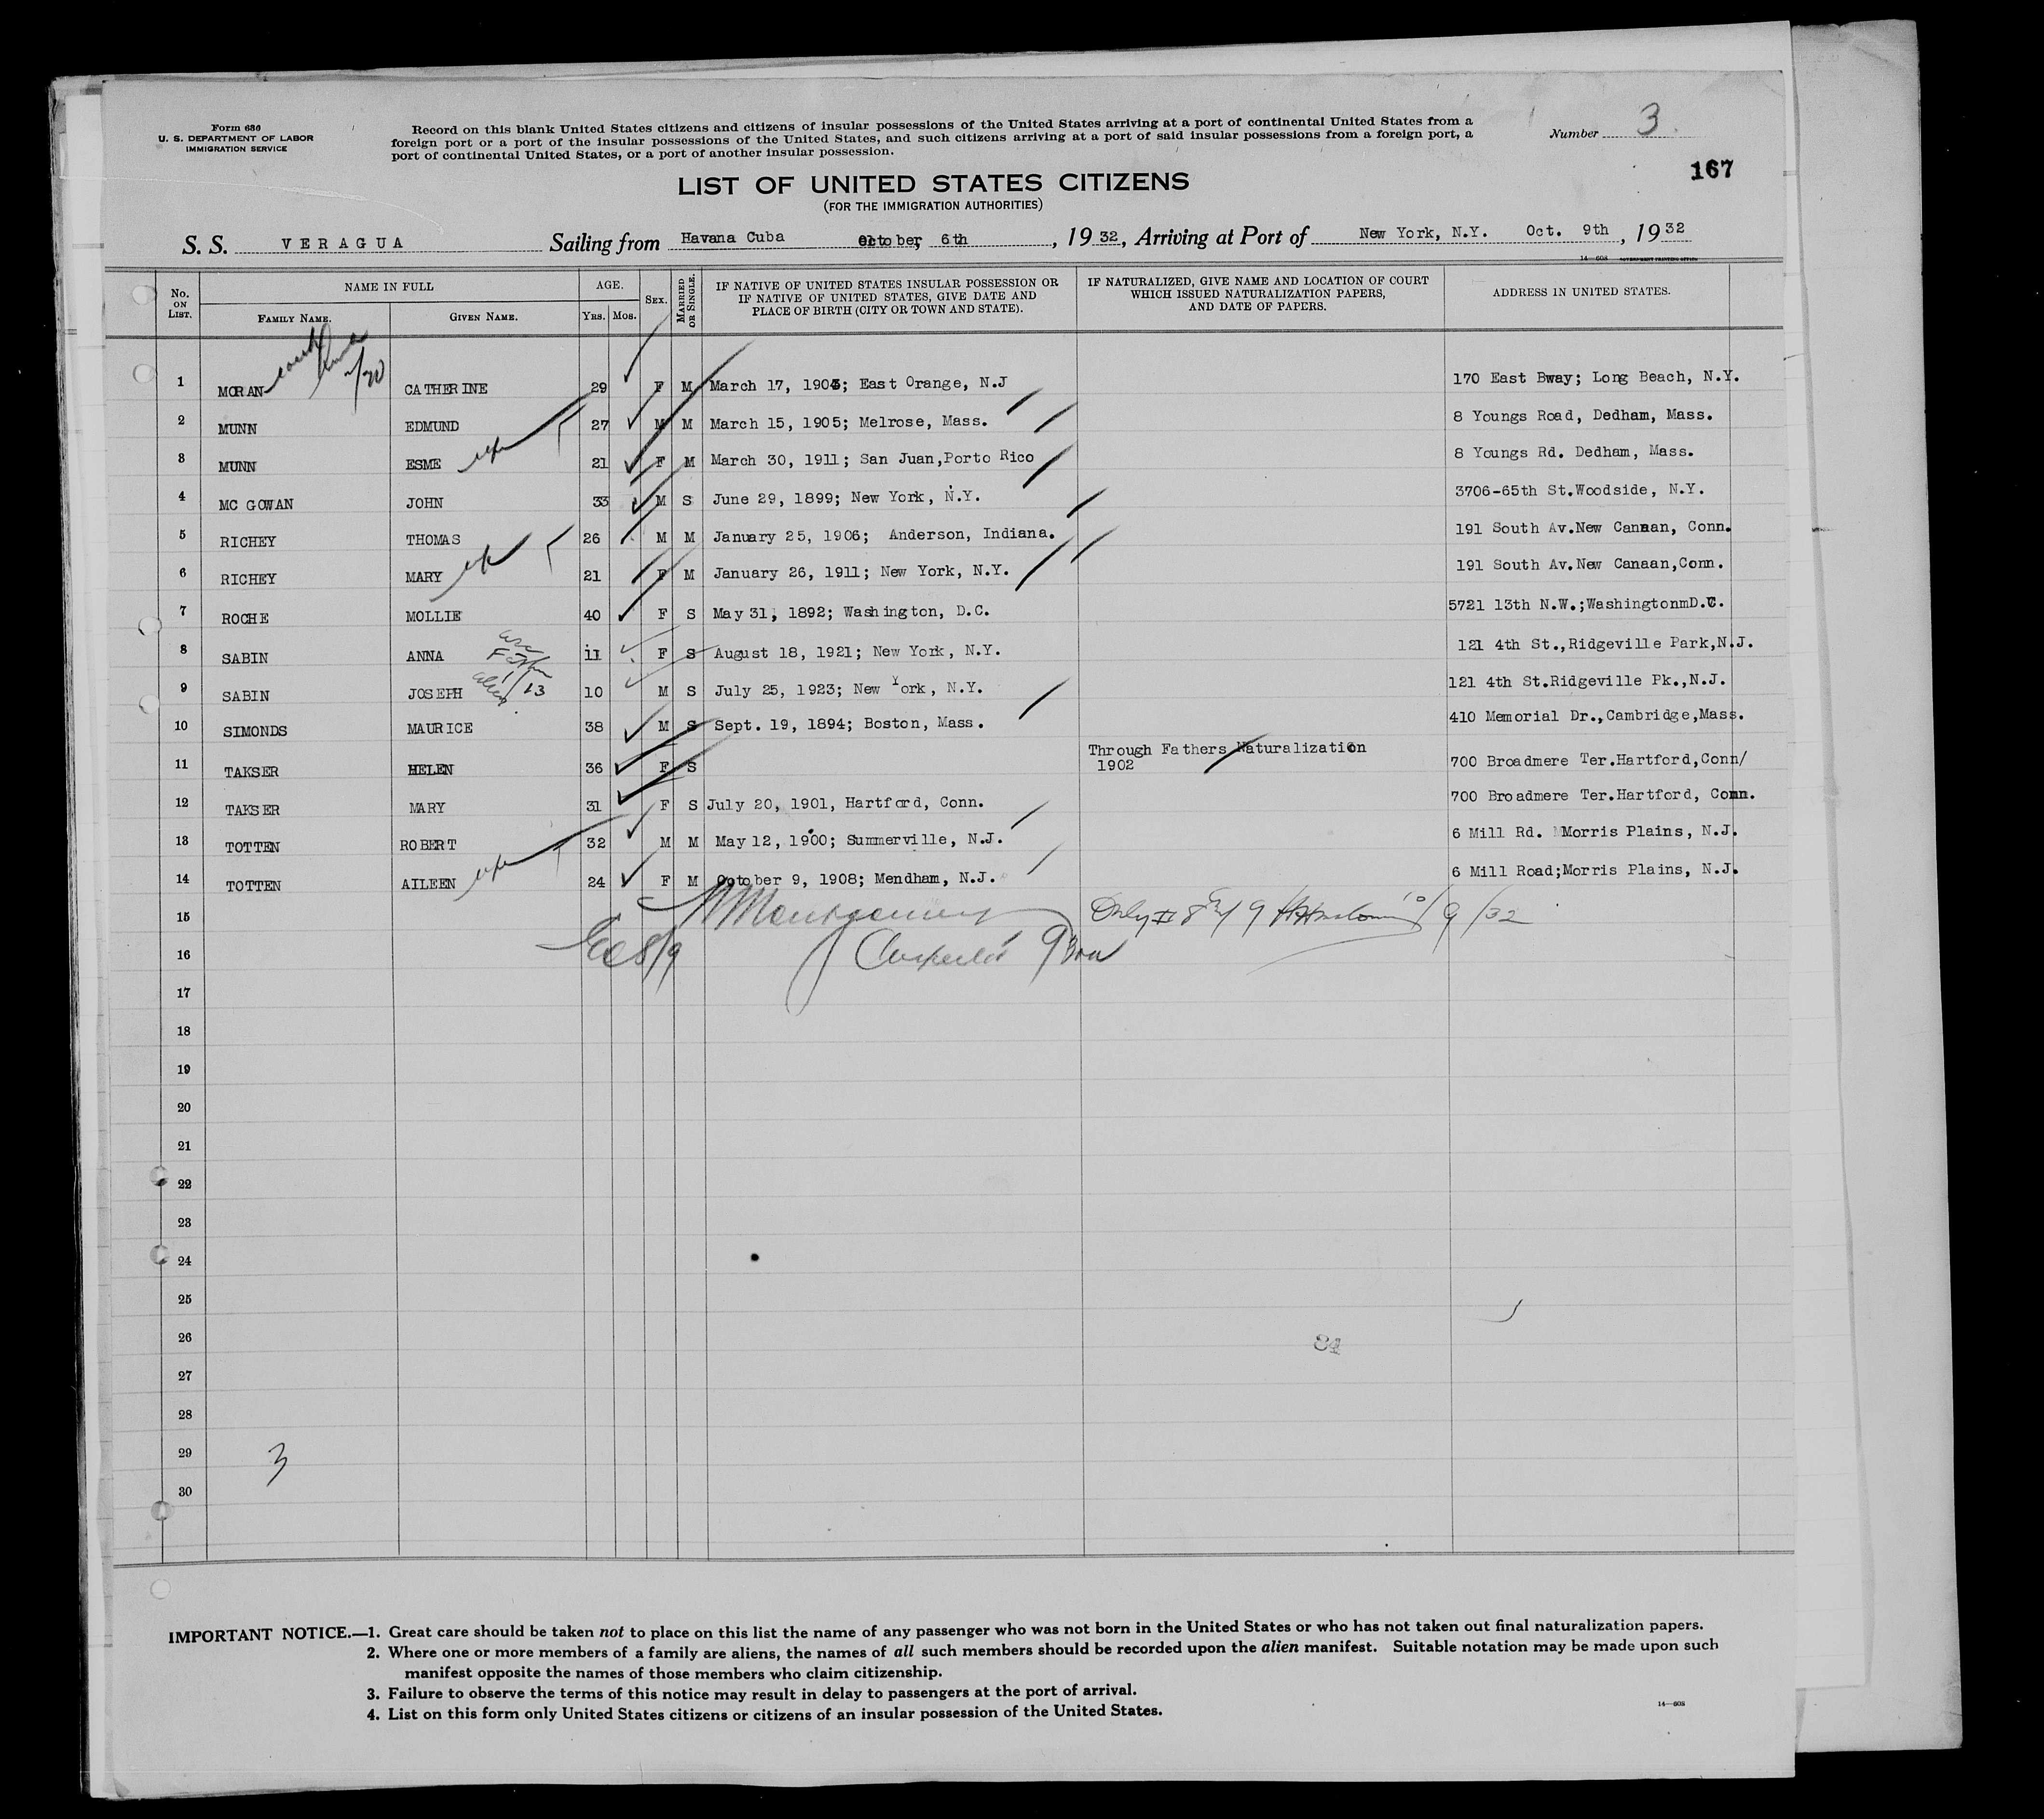 Form 630
U. S. DEPARTMENT OF LABOR
IMMIGRATION SERVICE
Record on this blank United States citizens and citizens of insular possessions of the United States arriving at a port of continental United States from a
foreign port or a port of the insular possessions of the United States, and such citizens arriving at a port of said insular possessions from a foreign port, a
port of continental United States, or a port of another insular possession.
Number 3
167
LIST OF UNITED STATES CITIZENS
(FOR THE IMMIGRATION AUTHORITIES)
S. S. VERAGUA Sailing from Havana Cuba October, 6th, 1932, Arriving at Port of New York, N.Y. Oct. 9th, 1932
No. ON LIST. NAME IN FULL FAMILY NAME. GIVEN NAME. AGE. YRS. MOS. SEX. MARRIED OR SINGLE. IF NATIVE OF UNITED STATES INSULAR POSSESSION OR IF NATIVE OF UNITED STATES, GIVE DATE AND PLACE OF BIRTH (CITY OR TOWN AND STATE). IF NATURALIZED, GIVE NAME AND LOCATION OF COURT WHICH ISSUED NATURALIZATION PAPERS, AND DATE OF PAPERS. ADDRESS IN UNITED STATES.
1 MORAN CATHERINE 29 F M March 17, 1903; East Orange, N.J 170 East Bway; Long Beach, N.Y.
2 MUNN EDMUND 27 M M March 15, 1905; Melrose, Mass. 8 Youngs Road, Dedham, Mass.
3 MUNN ESME 21 F M March 30, 1911; San Juan,Porto Rico 8 Youngs Rd. Dedham, Mass.
4 MC GOWAN JOHN 33 M S June 29, 1899; New York, N.Y. 3706-65th St.Woodside, N.Y.
5 RICHEY THOMAS 26 M M January 25, 1906; Anderson, Indiana. 191 South Av.New Canaan, Conn.
6 RICHEY MARY 21 F M January 26, 1911; New York, N.Y. 191 South Av.New Canaan,Conn.
7 ROCHE MOLLIE 40 F S May 31, 1892; Washington, D.C. 5721 13th N.W.;WashingtonmD.C.
8 SABIN ANNA 11 F S August 18, 1921; New York, N.Y. 121 4th St.,Ridgeville Park,N.J.
9 SABIN JOSEPH 10 M S July 25, 1923; New York, N.Y. 121 4th St.Ridgeville Pk.,N.J.
10 SIMONDS MAURICE 38 M S Sept. 19, 1894; Boston, Mass. 410 Memorial Dr.,Cambridge,Mass.
11 TAKSER HELEN 36 F S Through Fathers Naturalization 1902 700 Broadmere Ter.Hartford,Conn/
12 TAKSER MARY 31 F S July 20, 1901, Hartford, Conn. 700 Broadmere Ter.Hartford, Conn.
13 TOTTEN ROBERT 32 M M May 12, 1900; Summerville, N.J. 6 Mill Rd. Morris Plains, N.J.
14 TOTTEN AILEEN 24 F M October 9, 1908; Mendham, N.J. 6 Mill Road;Morris Plains, N.J.
15 Montgomery Only # 8 & 9 10/9/32
16 8/9
17
18
19
20
21
22
23
24
25
26 84
27
28
29 3
30
IMPORTANT NOTICE.—1. Great care should be taken not to place on this list the name of any passenger who was not born in the United States or who has not taken out final naturalization papers.
2. Where one or more members of a family are aliens, the names of all such members should be recorded upon the alien manifest. Suitable notation may be made upon such
manifest opposite the names of those members who claim citizenship.
3. Failure to observe the terms of this notice may result in delay to passengers at the port of arrival.
4. List on this form only United States citizens or citizens of an insular possession of the United States.
14—608